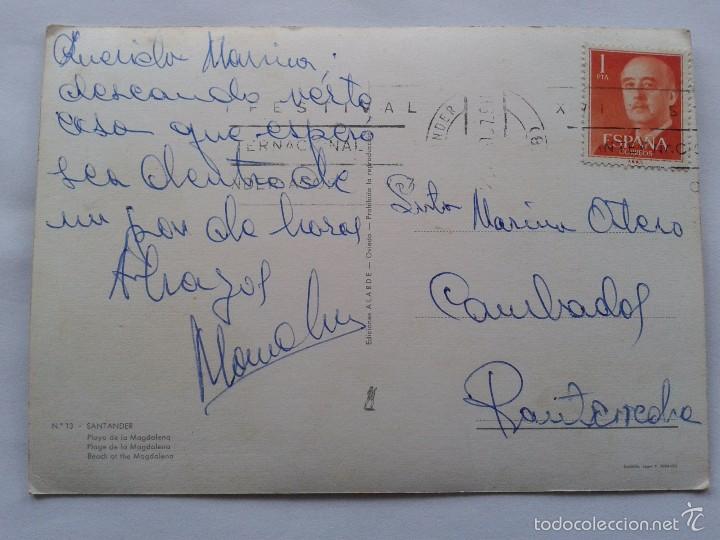 Querida Marina:
deseando verte
cosa que espero
sea dentro de
un par de horas
Abrazos
Nº 13 - SANTANDER
Playa de la Magdalena
Plage de la Magdalena
Beach at the Magdalena
Ediciones ALARDE — Oviedo — Prohibida la reproducción
FESTIVAL
NDER
XVI
1 PTA
ESPAÑA
CORREOS
Srta Marina Otero
Cambados
Pontevedra
todocoleccion.net